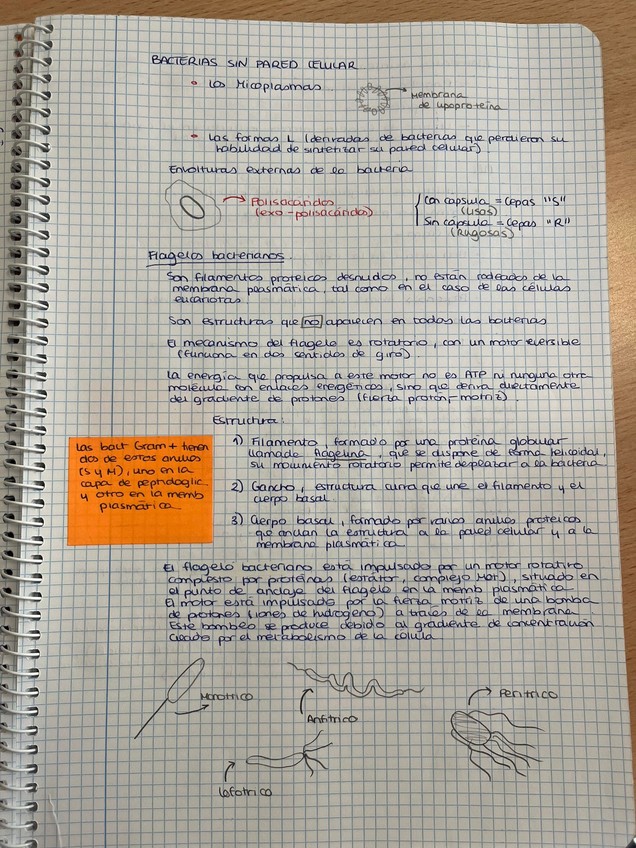 BACTERIAS SIN PARED CELULAR
• Los Micoplasmas
Membrana
de lipoproteina
• Las formas L (derivadas de bacterias que perdieron su
habilidad de sintetizar su pared celular).
Envolturas externas de la bacteria
Polisacaridos
(exo-polisacárido)
Con capsula = Cepas "S"
(Lisos)
Sin cápsula = Cepas "R"
(Rugosas)
Flagelos bacterianos.
Son filamentos proteicos desnudos, no están rodeados de la
membrana plasmática, tal como en el caso de las células
eucariotas
Son estructuras que no aparecen en todas las bacterias
El mecanismo del flagelo es rotatorio, con un motor reversible
(funciona en dos sentidos de giro).
La energia que propulsa a este motor no es ATP ni ninguna otra
molécula con enlaces energéticos, sino que deriva directamente
del gradiente de protones (fuerza protón-motriz).
Estructura:
Las bact Gram+ tienen
dos de estos anillos
(S y M), uno en la
capa de peptidoglic
y otro en la memb
plasmática
1) Filamento, formado por una proteina globular
llamada flagelina, que se dispone de forma helicoidal,
su movimiento rotatorio permite desplazar a la bacteria
2) Gancho, estructura curva que une el filamento y el
cuerpo basal
3) Cuerpo basal, formado por varios anillos proteicos
que anclan la estructura a la pared celular y a la
membrana plasmática
El flagelo bacteriano está impulsado por un motor rotativo
compuesto por proteinas (estator, complejo Mot), situado en
el punto de anclaje del flagelo en la memb plasmática
El motor está impulsado por la fuerza motriz de una bomba
de protones (iones de hidrogeno) a través de la membrana
Este bombeo se produce debido al gradiente de concentración
creado por el metabolismo de la célula
Monotrico
Anfitrico
Peritrico
Lofotrico